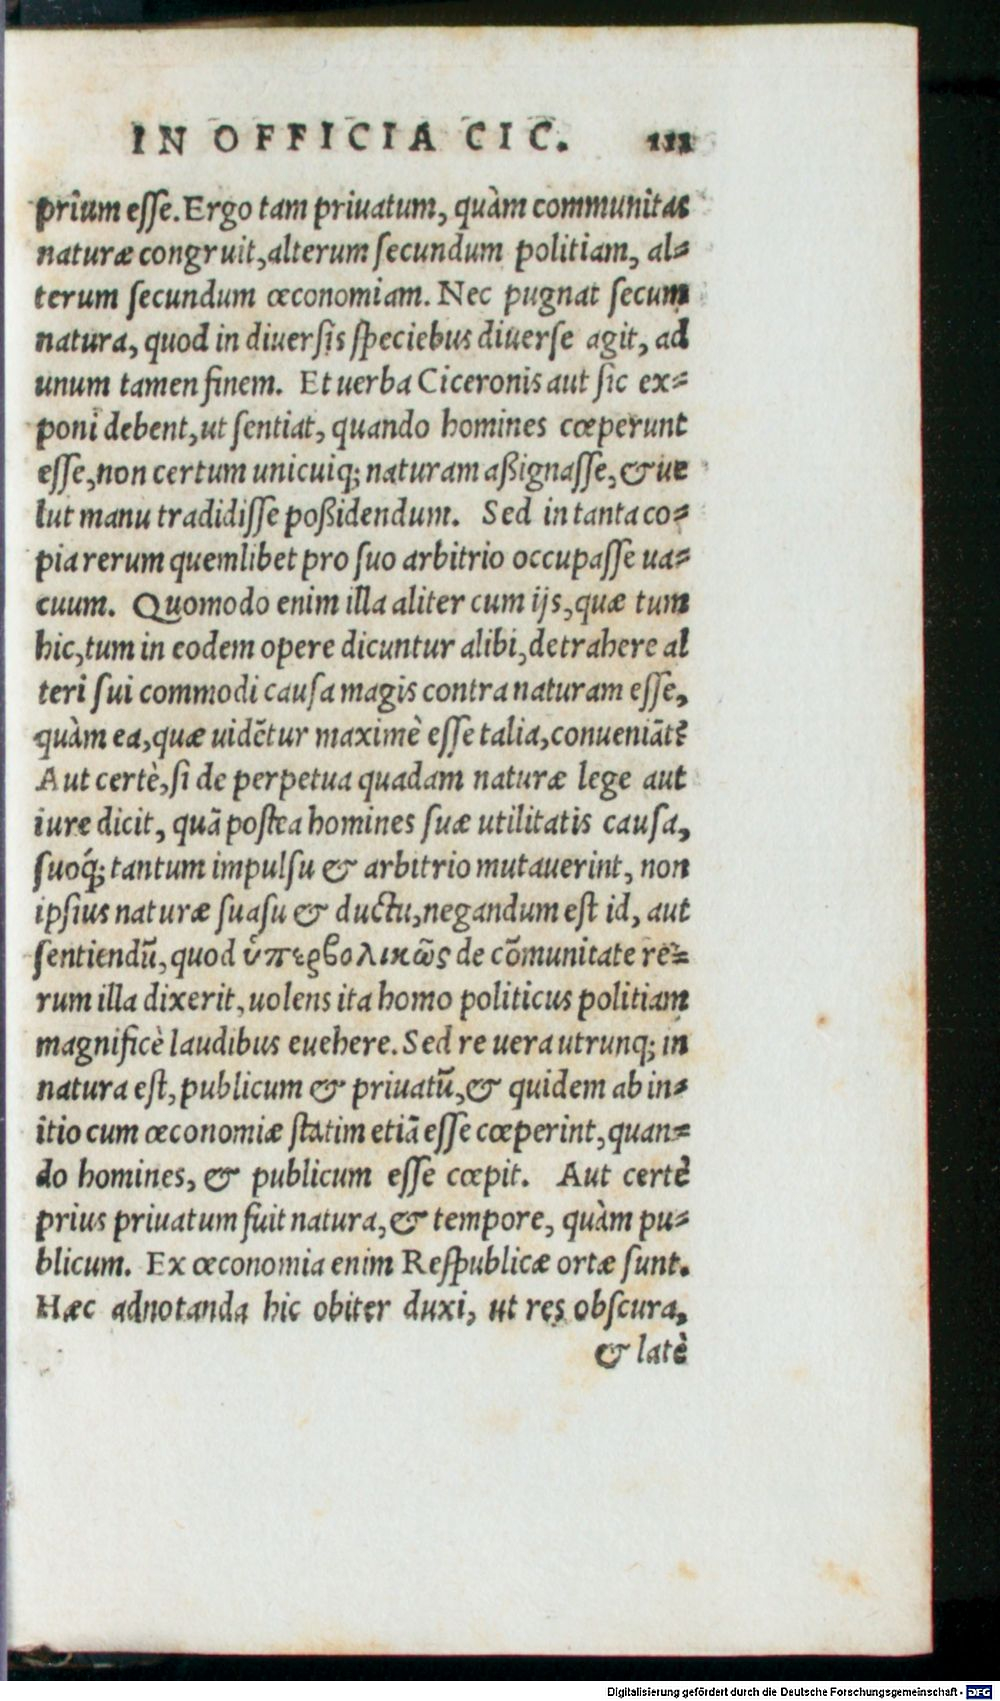 IN OFFICIA CIC.
prium esse. Ergo tam priuatum, quàm communitas
naturæ congruit, alterum secundum politiam, al=
terum secundum œconomiam. Nec pugnat secum
natura, quod in diuersis speciebus diuerse agit, ad
unum tamen finem. Et uerba Ciceronis aut sic ex=
poni debent, ut sentiat, quando homines cœperunt
esse, non certum unicuiq; naturam aßignasse, & ue
lut manu tradidisse poßidendum. Sed in tanta co=
pia rerum quemlibet pro suo arbitrio occupasse ua=
cuum. Quomodo enim illa aliter cum ijs, quæ tum
hic, tum in eodem opere dicuntur alibi, detrahere al
teri sui commodi causa magis contra naturam esse,
quàm ea, quæ uidẽtur maximè esse talia, conueniãt?
Aut certè, si de perpetua quadam naturæ lege aut
iure dicit, quã postea homines suæ utilitatis causa,
suoq́; tantum impulsu & arbitrio mutauerint, non
ipsius naturæ suasu & ductu, negandum est id, aut
sentiendũ, quod ὑπερβολικῶς de cõmunitate re=
rum illa dixerit, uolens ita homo politicus politiam
magnificè laudibus euehere. Sed re uera utrunq; in
natura est, publicum & priuatũ, & quidem ab in=
itio cum œconomiæ statim etiã esse cœperint, quan=
do homines, & publicum esse cœpit. Aut certè
prius priuatum fuit natura, & tempore, quàm pu=
blicum. Ex œconomia enim Respublicæ ortæ sunt.
Hæc adnotanda hic obiter duxi, ut res obscura,
& latè
Digitalisierung gefördert durch die Deutsche Forschungsgemeinschaft - DFG